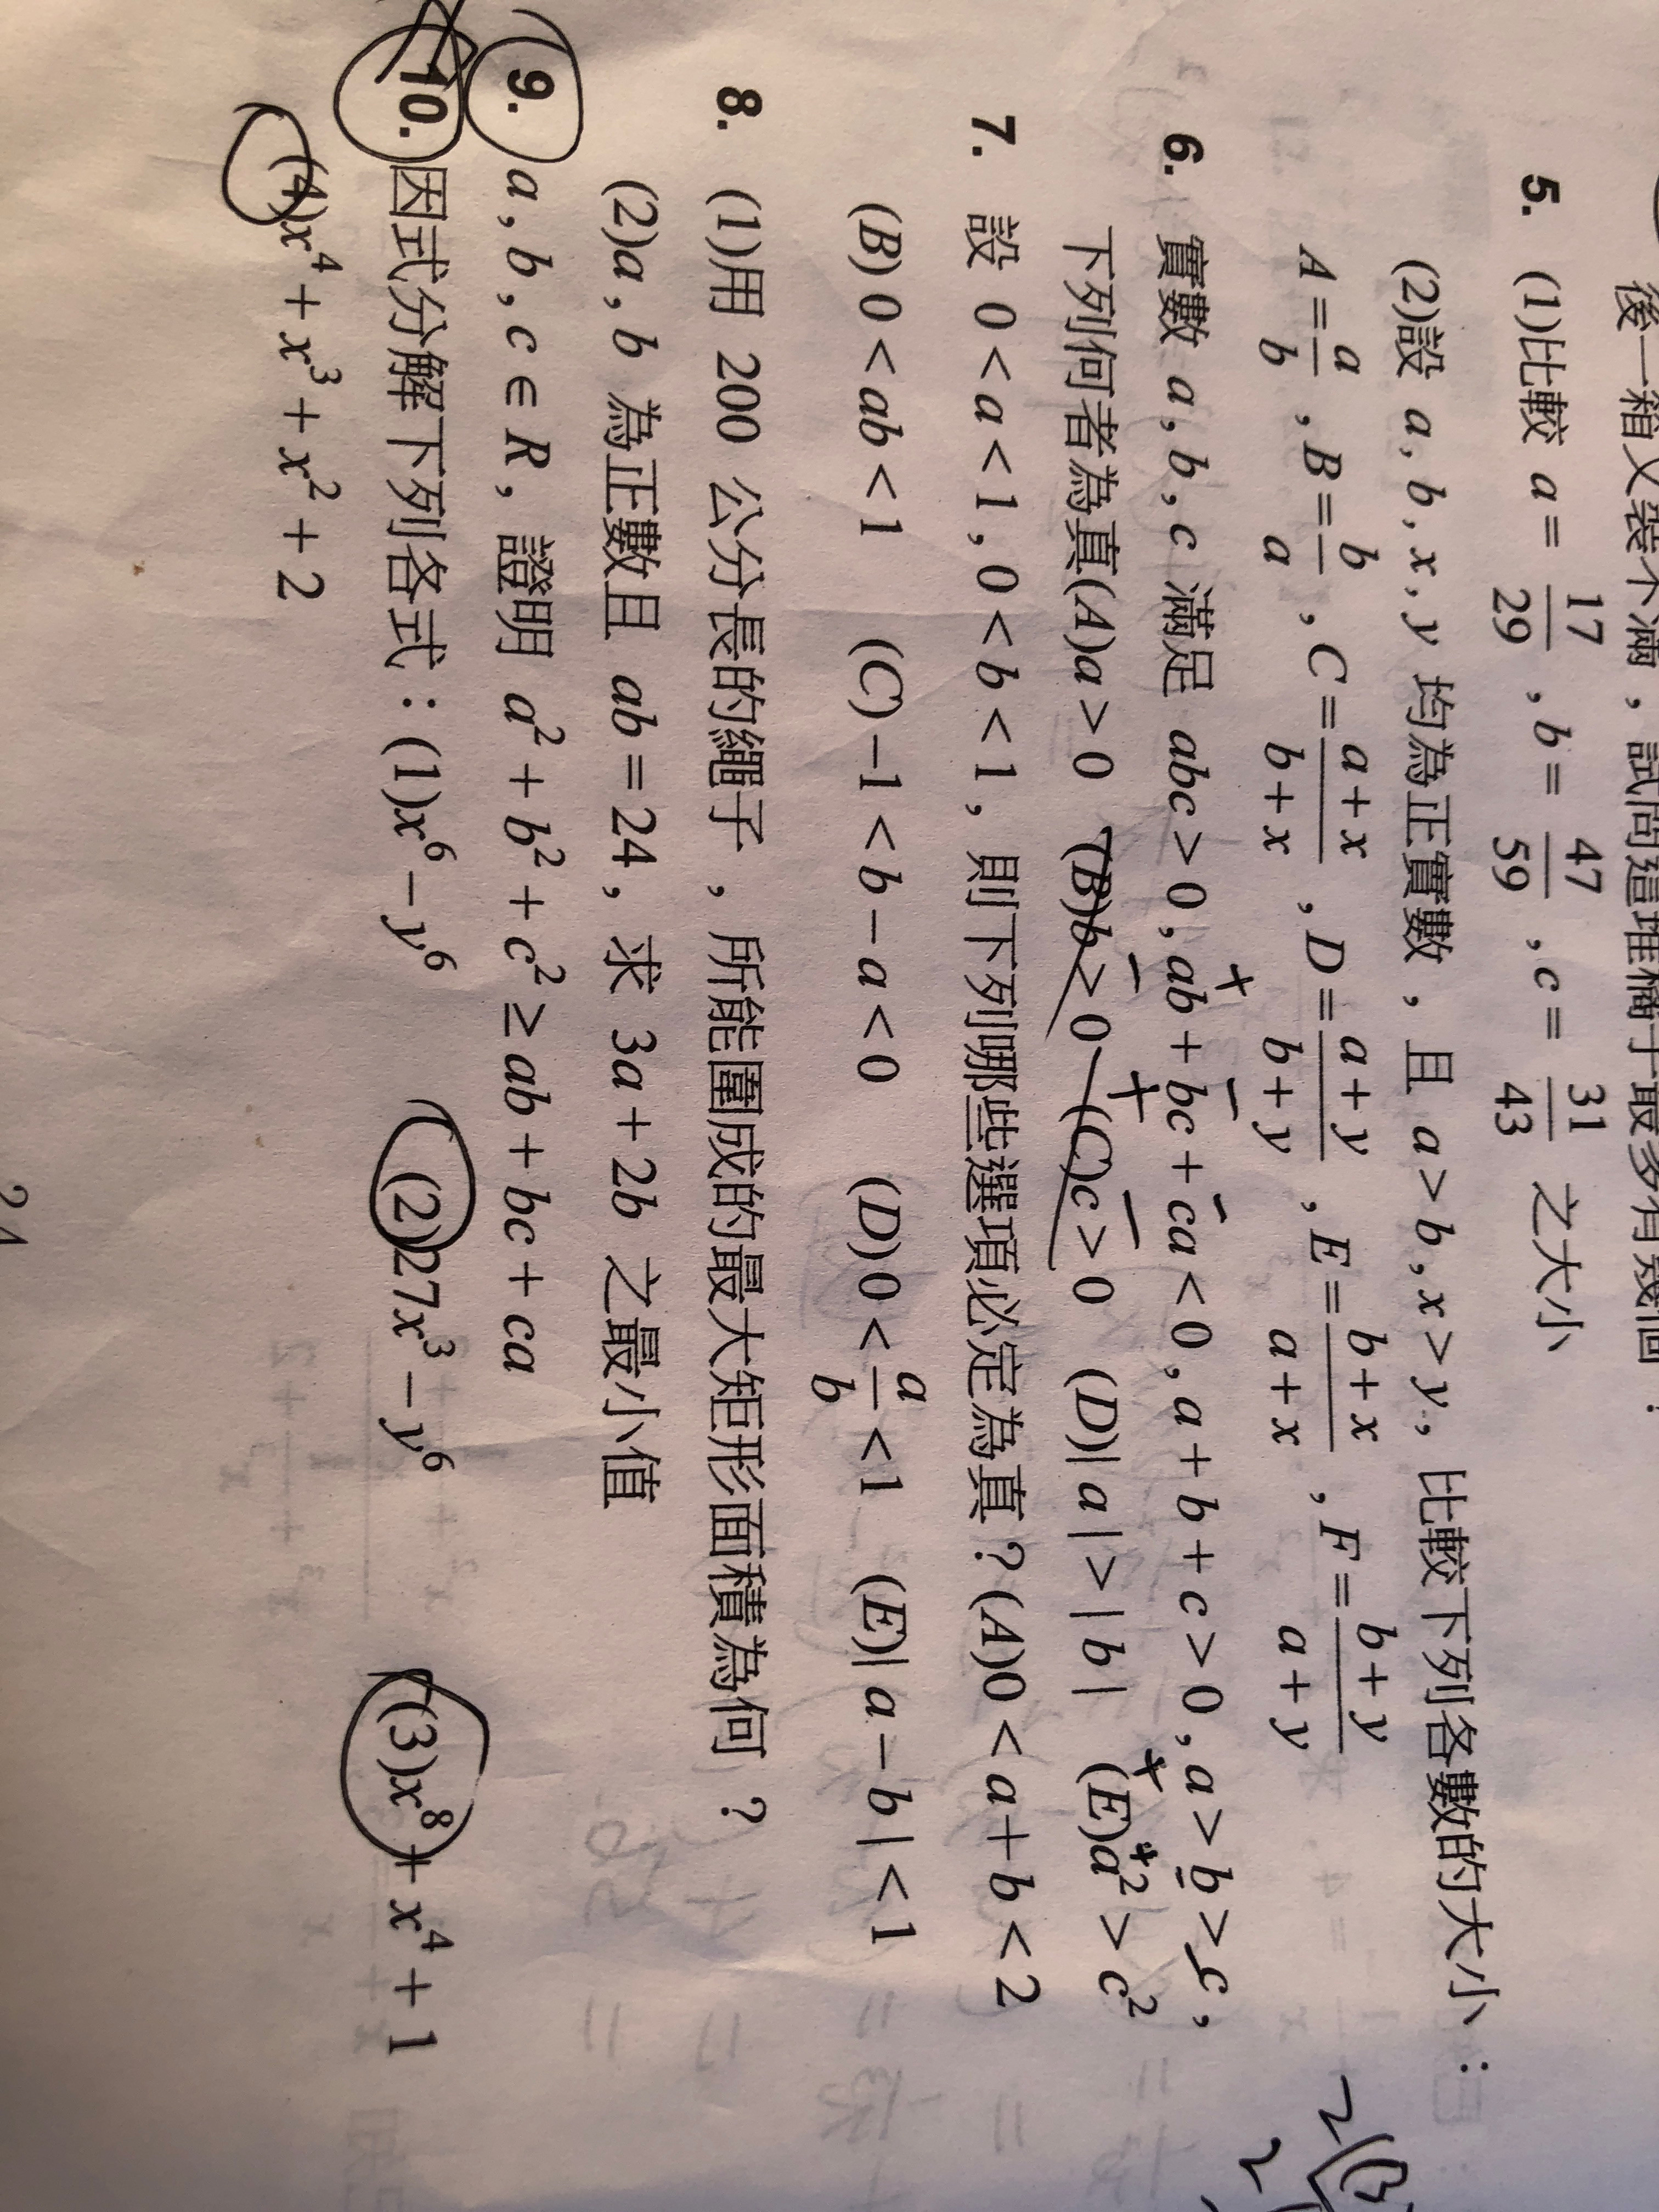 後一箱又裝不滿，試問這堆橘子最多有幾個？
5. (1)比較 a = 17/29 , b = 47/59 , c = 31/43 之大小
(2)設 a , b , x , y 均為正實數，且 a > b , x > y，比較下列各數的大小：
A = a/b , B = b/a , C = (a+x)/(b+x) , D = (a+y)/(b+y) , E = (b+x)/(a+x) , F = (b+y)/(a+y)
6. 實數 a , b , c 滿足 abc > 0 , ab + bc + ca < 0 , a + b + c > 0 , a > b > c ,
下列何者為真(A)a > 0 (B)b > 0 (C)c > 0 (D)| a | > | b | (E)a² > c²
7. 設 0 < a < 1 , 0 < b < 1，則下列哪些選項必定為真？(A)0 < a + b < 2
(B) 0 < ab < 1 (C) −1 < b − a < 0 (D) 0 < a/b < 1 (E)| a − b | < 1
8. (1)用 200 公分長的繩子，所能圍成的最大矩形面積為何？
(2)a , b 為正數且 ab = 24，求 3a + 2b 之最小值
9. a , b , c ∈ R，證明 a² + b² + c² ≥ ab + bc + ca
10. 因式分解下列各式：(1)x⁶ − y⁶ (2)27x³ − y⁶ (3)x⁸ + x⁴ + 1
(4)x⁴ + x³ + x² + 2